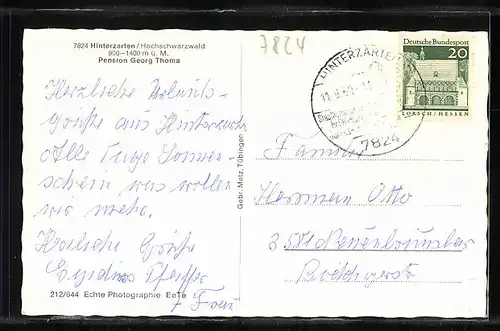 7824 Hinterzarten/Hochschwarzwald
900-1400 m ü. M.
Pension Georg Thoma
7824
HINTERZARTEN
7824
Deutsche Bundespost
20
LORSCH/HESSEN
Herzliche Urlaubs-
grüße aus Hinterzarten
Alle Tage Sonnen-
schein was wollen
wir mehr.
Herzliche Grüße
Pfeiffer
+ Frau
Gebr. Metz, Tübingen
Familie
Hermann Otto
212/644 Echte Photographie EeTe